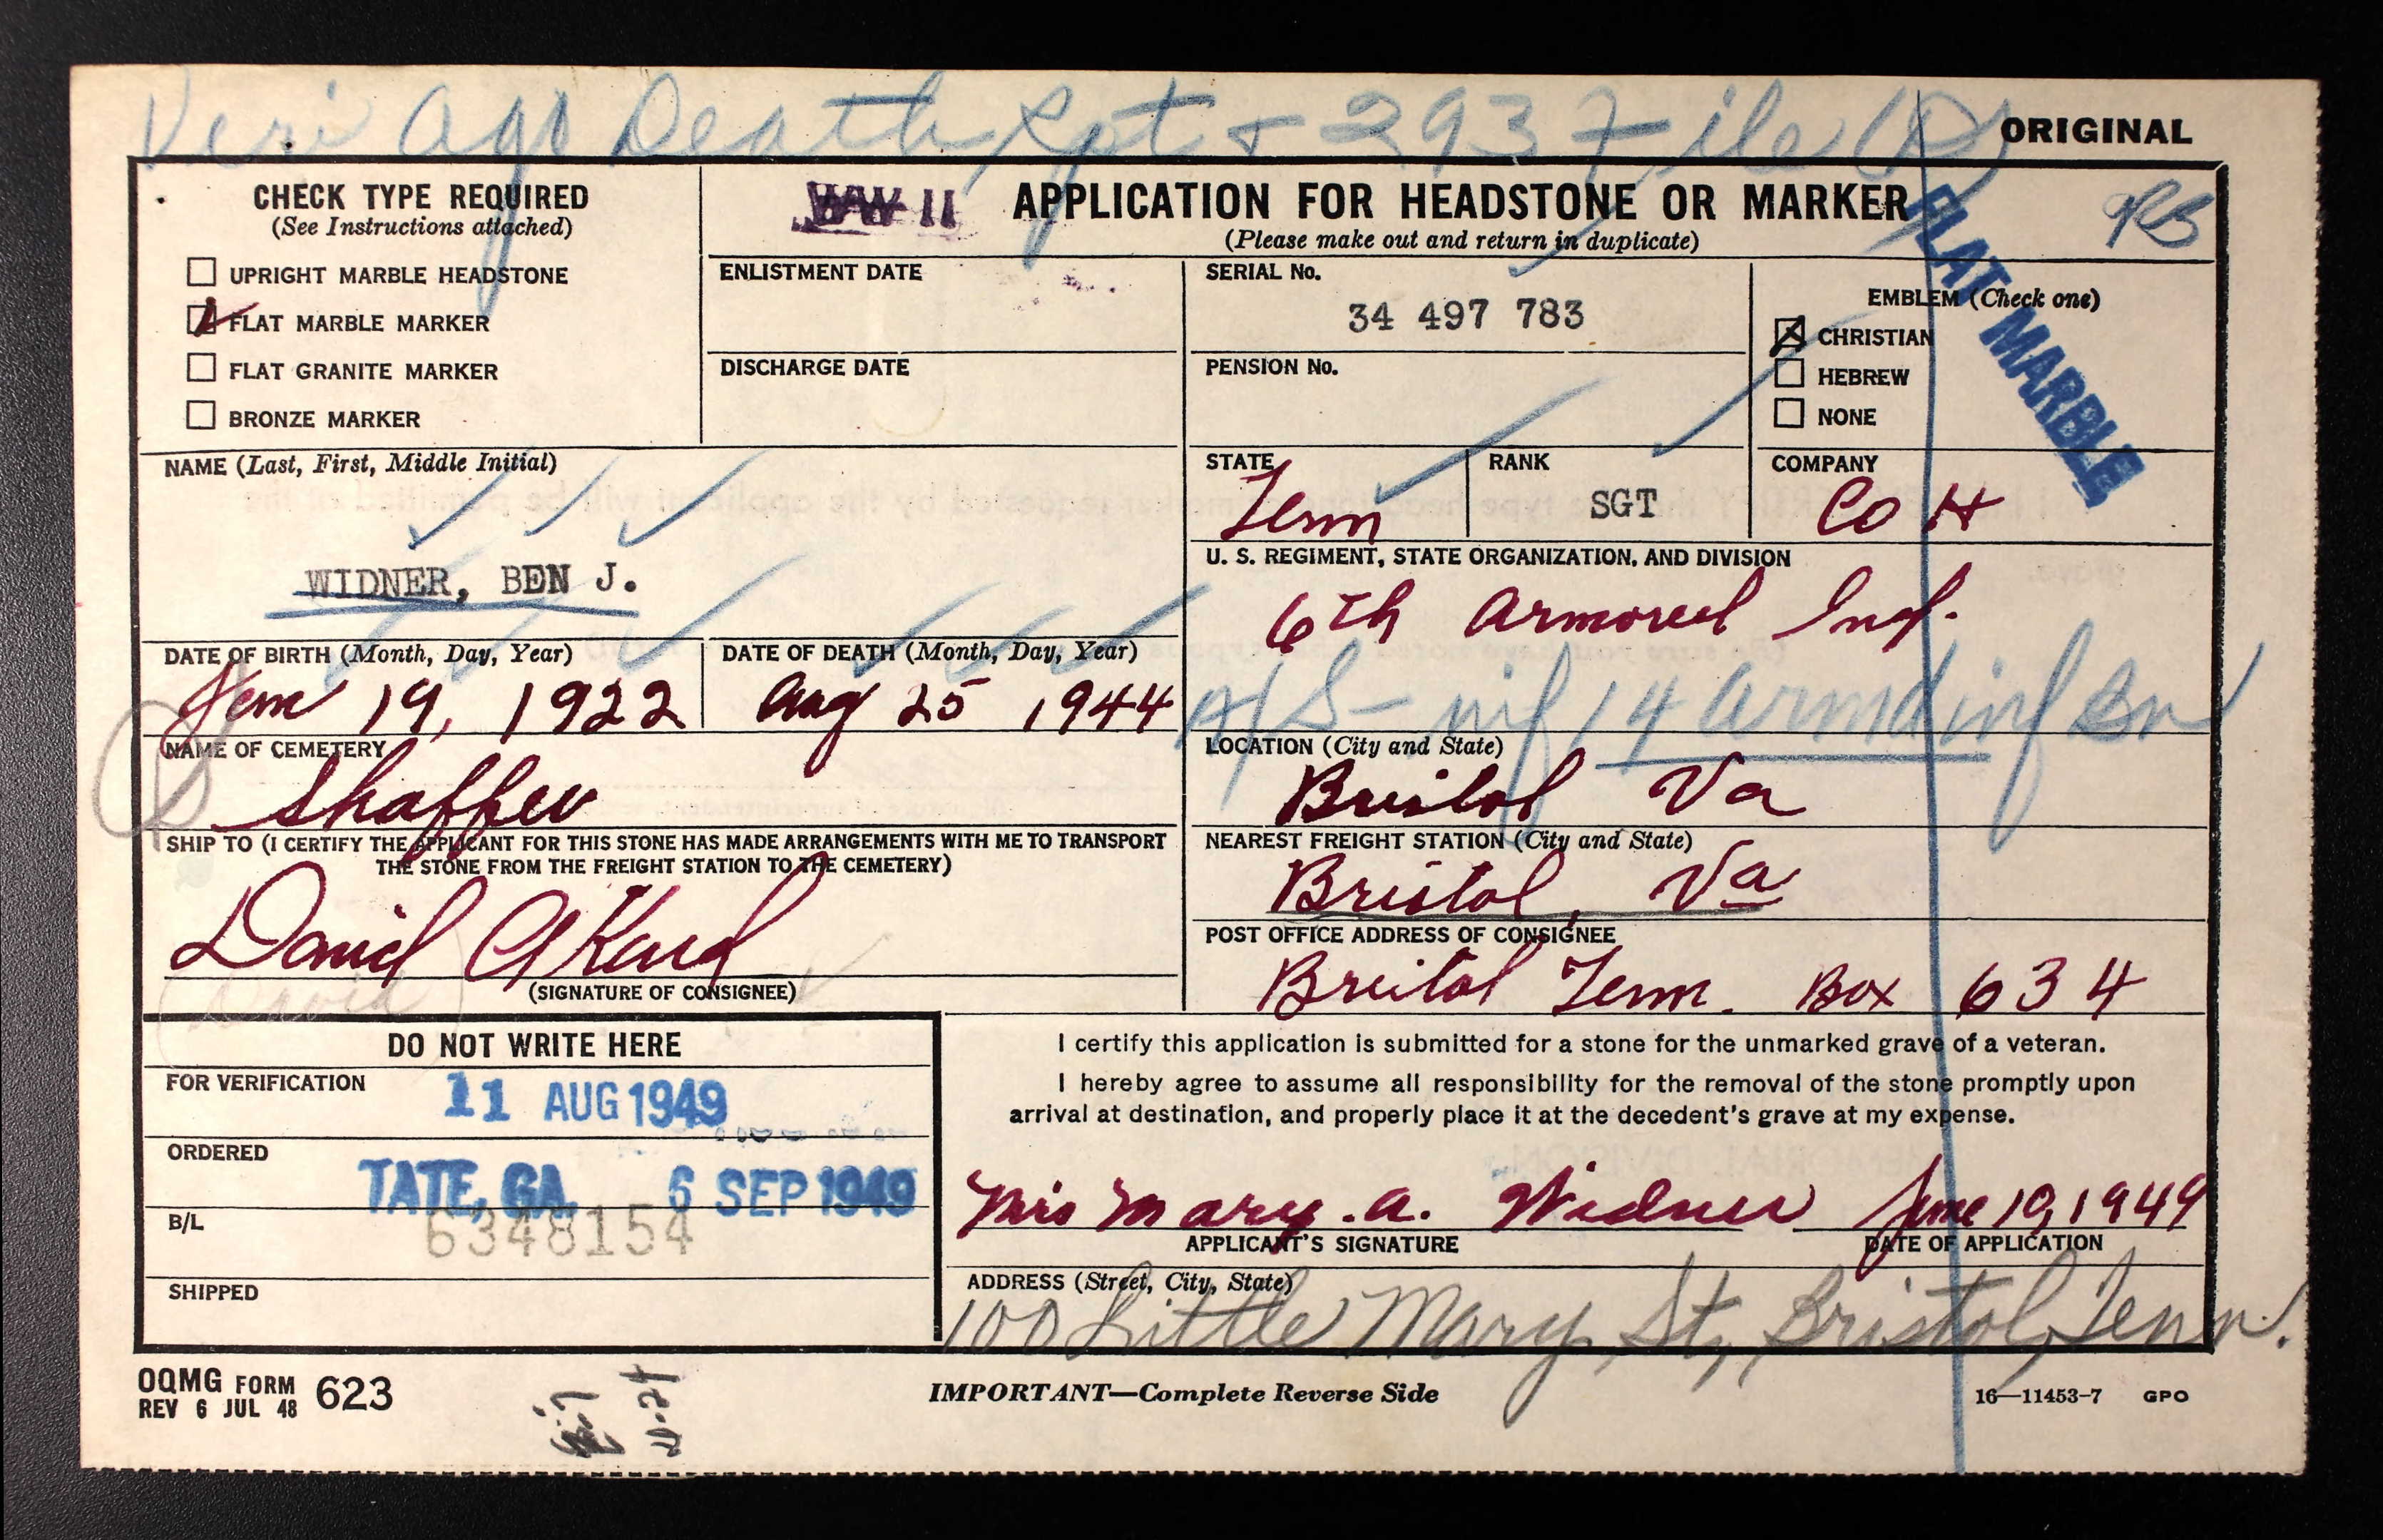 Veri Ago Death Rpt & 293 File (D)
ORIGINAL
CHECK TYPE REQUIRED
(See Instructions attached)
UPRIGHT MARBLE HEADSTONE
FLAT MARBLE MARKER
FLAT GRANITE MARKER
BRONZE MARKER
WW II
APPLICATION FOR HEADSTONE OR MARKER
(Please make out and return in duplicate)
FLAT MARBLE
ENLISTMENT DATE
DISCHARGE DATE
SERIAL No.
34 497 783
PENSION No.
EMBLEM (Check one)
CHRISTIAN
HEBREW
NONE
NAME (Last, First, Middle Initial)
WIDNER, BEN J.
STATE
Tenn
RANK
SGT
COMPANY
Co H
U. S. REGIMENT, STATE ORGANIZATION, AND DIVISION
6th Armored Inf.
A/S - inf 14 armd inf Bn
DATE OF BIRTH (Month, Day, Year)
19, 1922
DATE OF DEATH (Month, Day, Year)
Aug 25 1944
NAME OF CEMETERY
Shaffer
LOCATION (City and State)
Bristol Va
SHIP TO (I CERTIFY THE APPLICANT FOR THIS STONE HAS MADE ARRANGEMENTS WITH ME TO TRANSPORT
THE STONE FROM THE FREIGHT STATION TO THE CEMETERY)
David AKard
(David)
(SIGNATURE OF CONSIGNEE)
NEAREST FREIGHT STATION (City and State)
Bristol, Va
POST OFFICE ADDRESS OF CONSIGNEE
Bristol Tenn. Box 634
DO NOT WRITE HERE
FOR VERIFICATION
11 AUG 1949
ORDERED
TATE, GA. 6 SEP 1949
B/L
6348154
SHIPPED
I certify this application is submitted for a stone for the unmarked grave of a veteran.
I hereby agree to assume all responsibility for the removal of the stone promptly upon
arrival at destination, and properly place it at the decedent's grave at my expense.
Mrs Mary. A. Widner June 10, 1949
APPLICANT'S SIGNATURE
DATE OF APPLICATION
ADDRESS (Street, City, State)
100 Little Mary St., Bristol, Tenn.
OQMG FORM 623
REV 6 JUL 48
IMPORTANT—Complete Reverse Side
16—11453-7 GPO